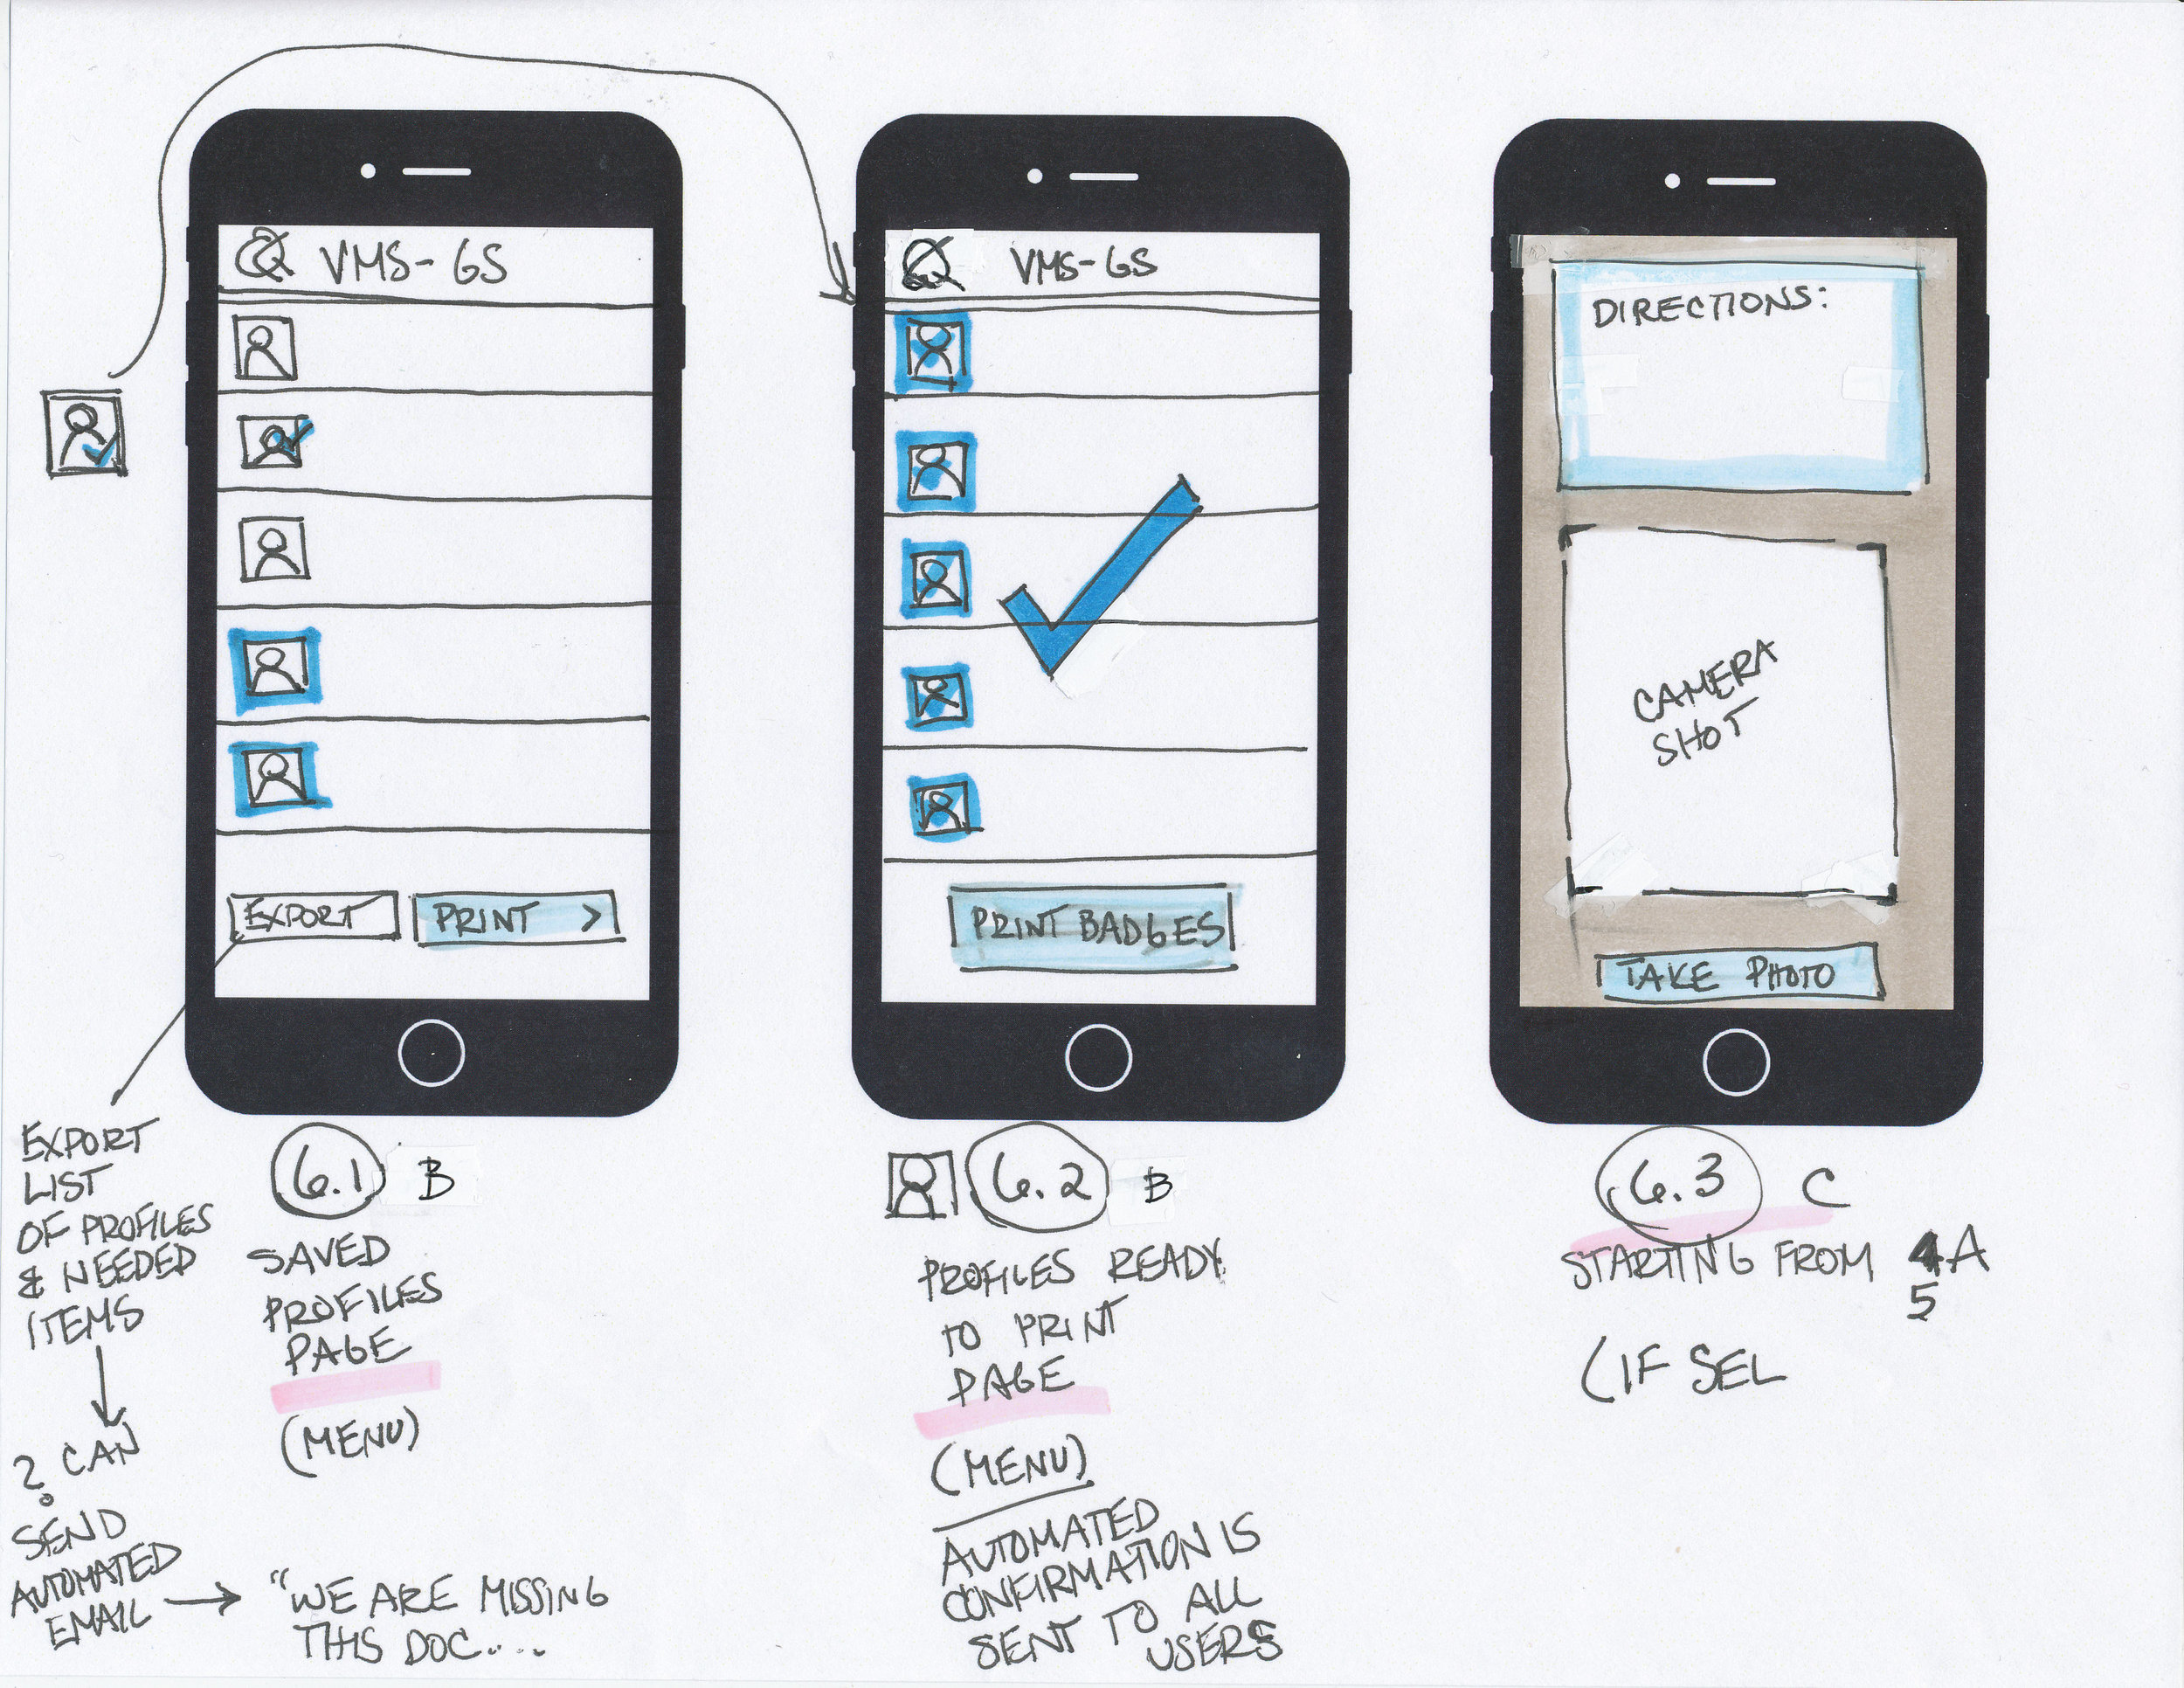 VMS-GS
EXPORT
PRINT >
EXPORT
LIST
OF PROFILES
& NEEDED
ITEMS
? CAN
SEND
AUTOMATED
EMAIL
"WE ARE MISSING
THIS DOC....
6.1 B
SAVED
PROFILES
PAGE
(MENU)
VMS-GS
PRINT BADGES
6.2 B
PROFILES READY
TO PRINT
PAGE
(MENU)
AUTOMATED
CONFIRMATION IS
SENT TO ALL
USERS
DIRECTIONS:
CAMERA
SHOT
TAKE PHOTO
6.3 C
STARTING FROM 4A
5
(IF SEL